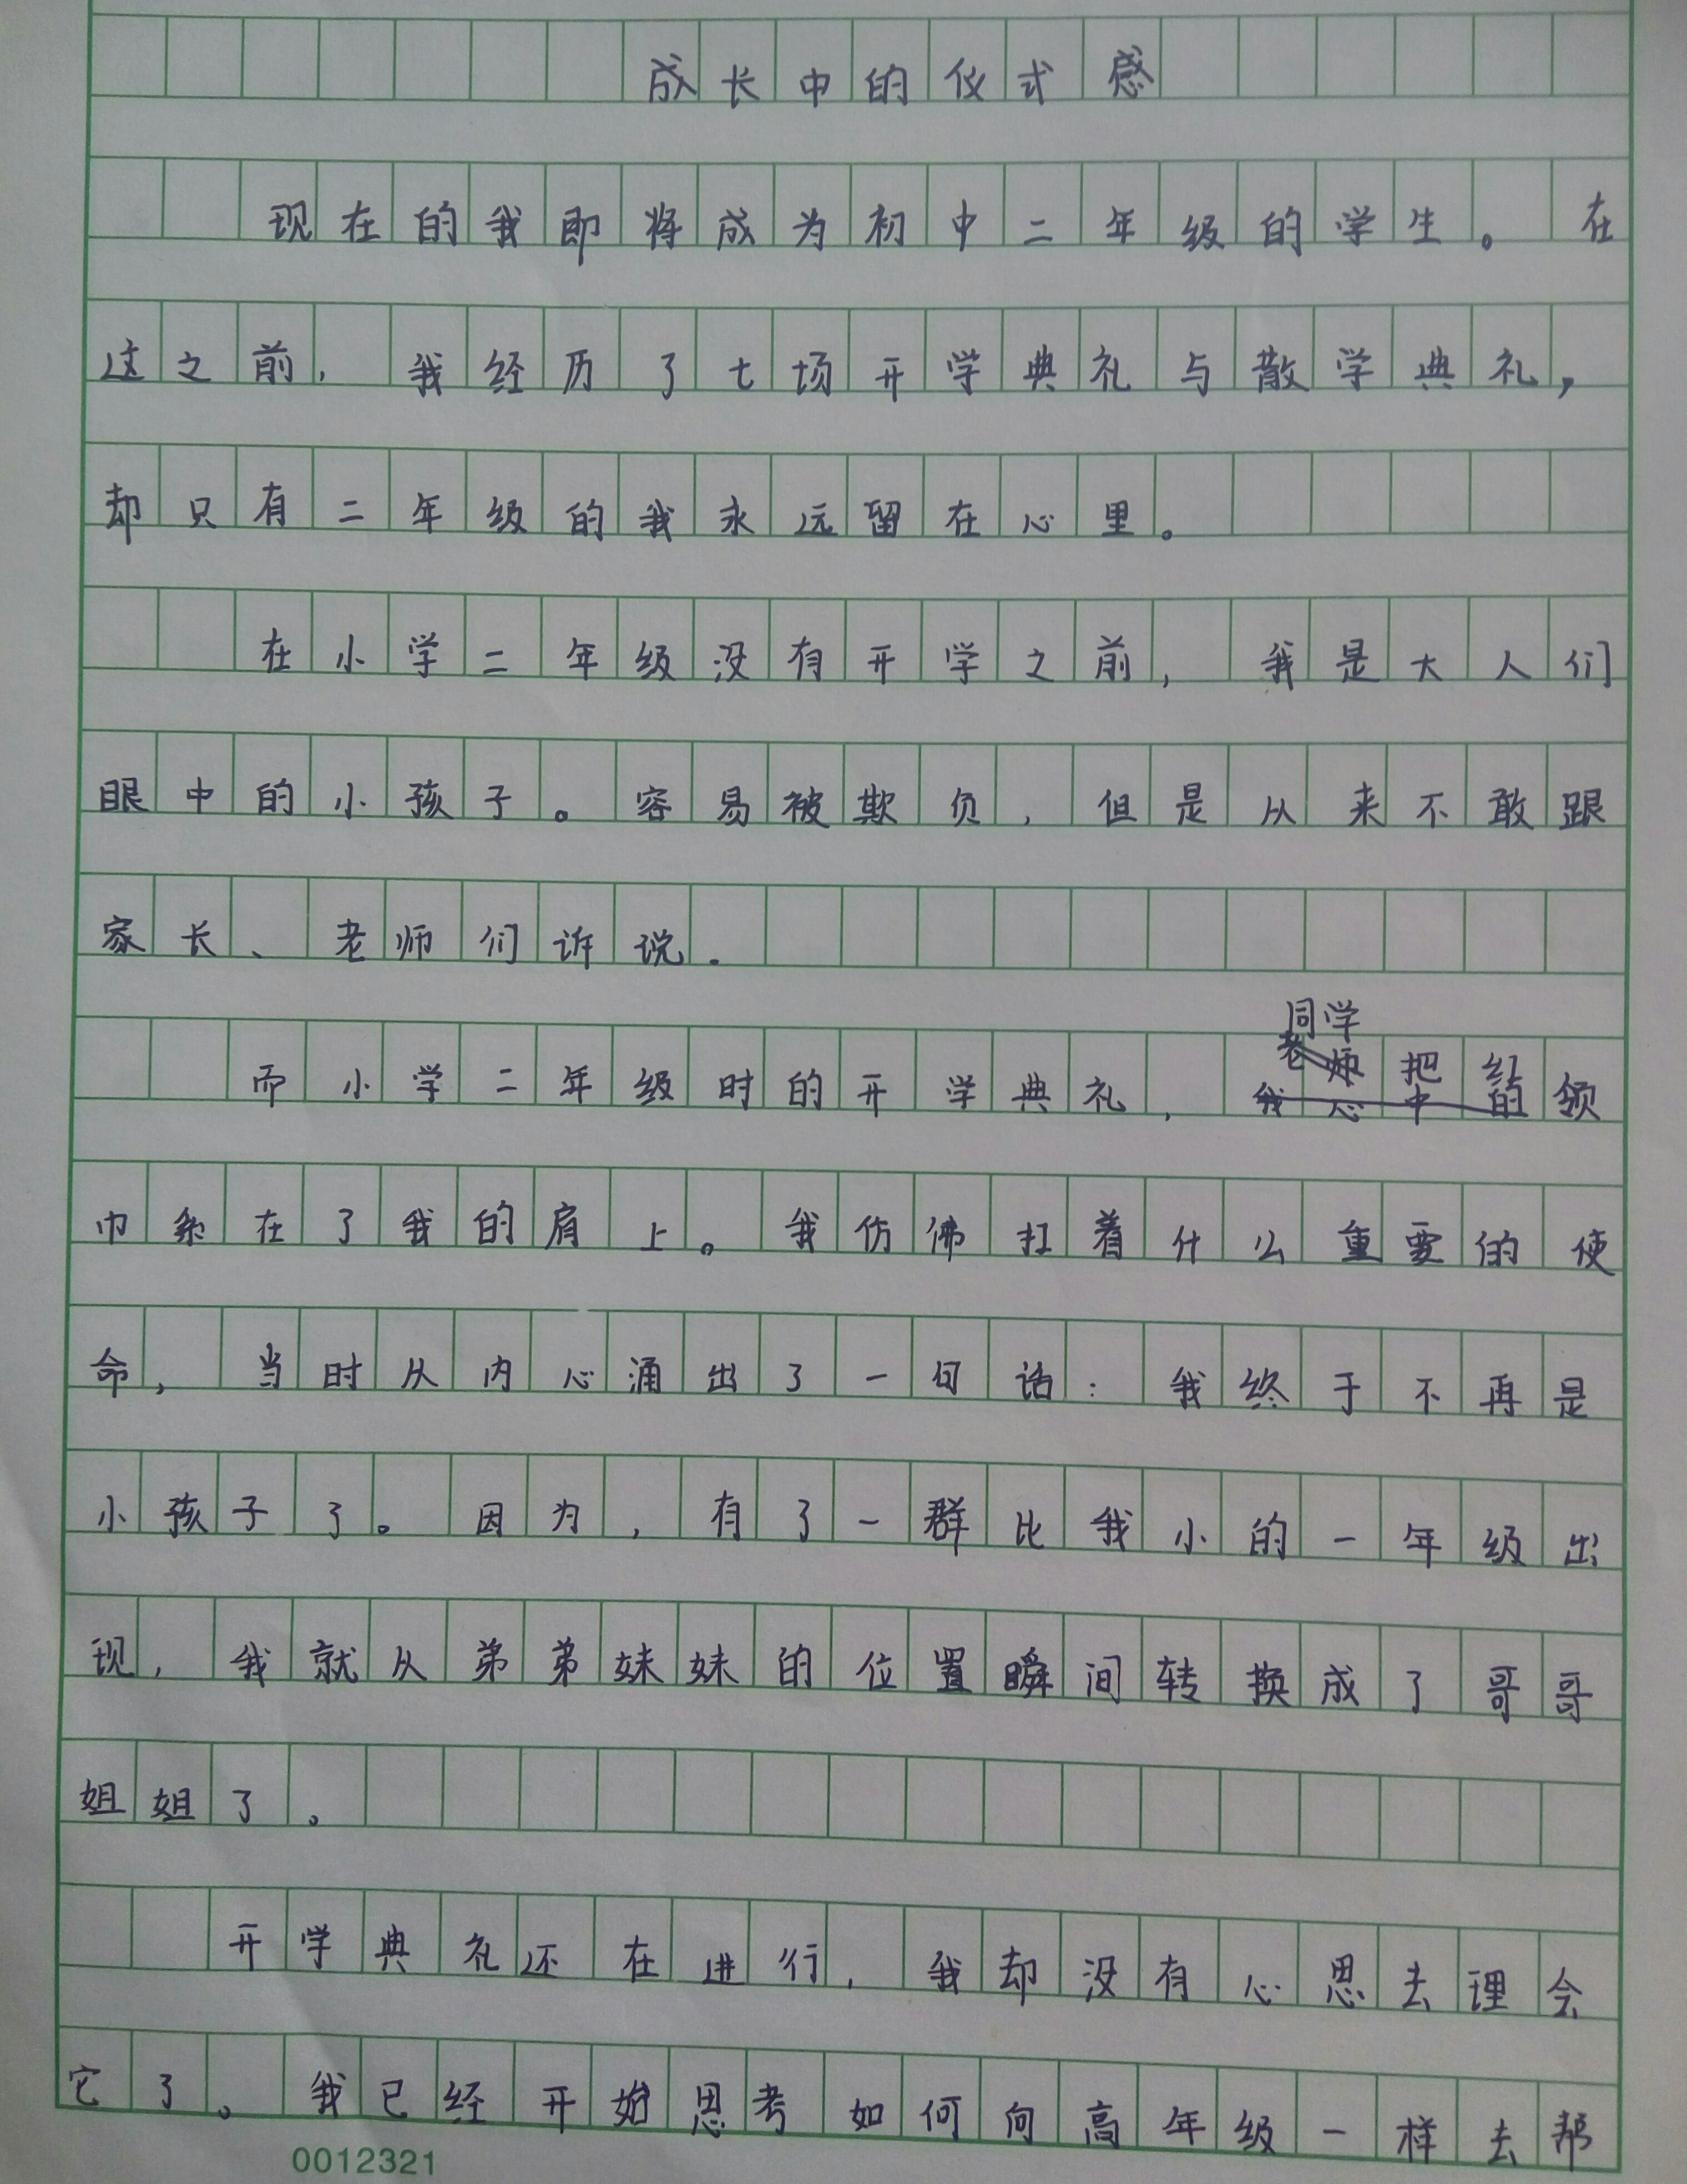 成长中的仪式感
现在的我即将成为初中二年级的学生。在
这之前，我经历了七场开学典礼与散学典礼，
却只有二年级的我永远留在心里。
在小学二年级没有开学之前，我是大人们
眼中的小孩子。容易被欺负，但是从来不敢跟
家长、老师们诉说。
同学
老师把红
而小学二年级时的开学典礼，我心中的领
巾系在了我的肩上。我仿佛扛着什么重要的使
命，当时从内心涌出了一句话：我终于不再是
小孩子了。因为，有了一群比我小的一年级出
现，我就从弟弟妹妹的位置瞬间转换成了哥哥
姐姐了。
开学典礼还在进行，我却没有心思去理会
它了。我已经开始思考如何向高年级一样去帮
0012321